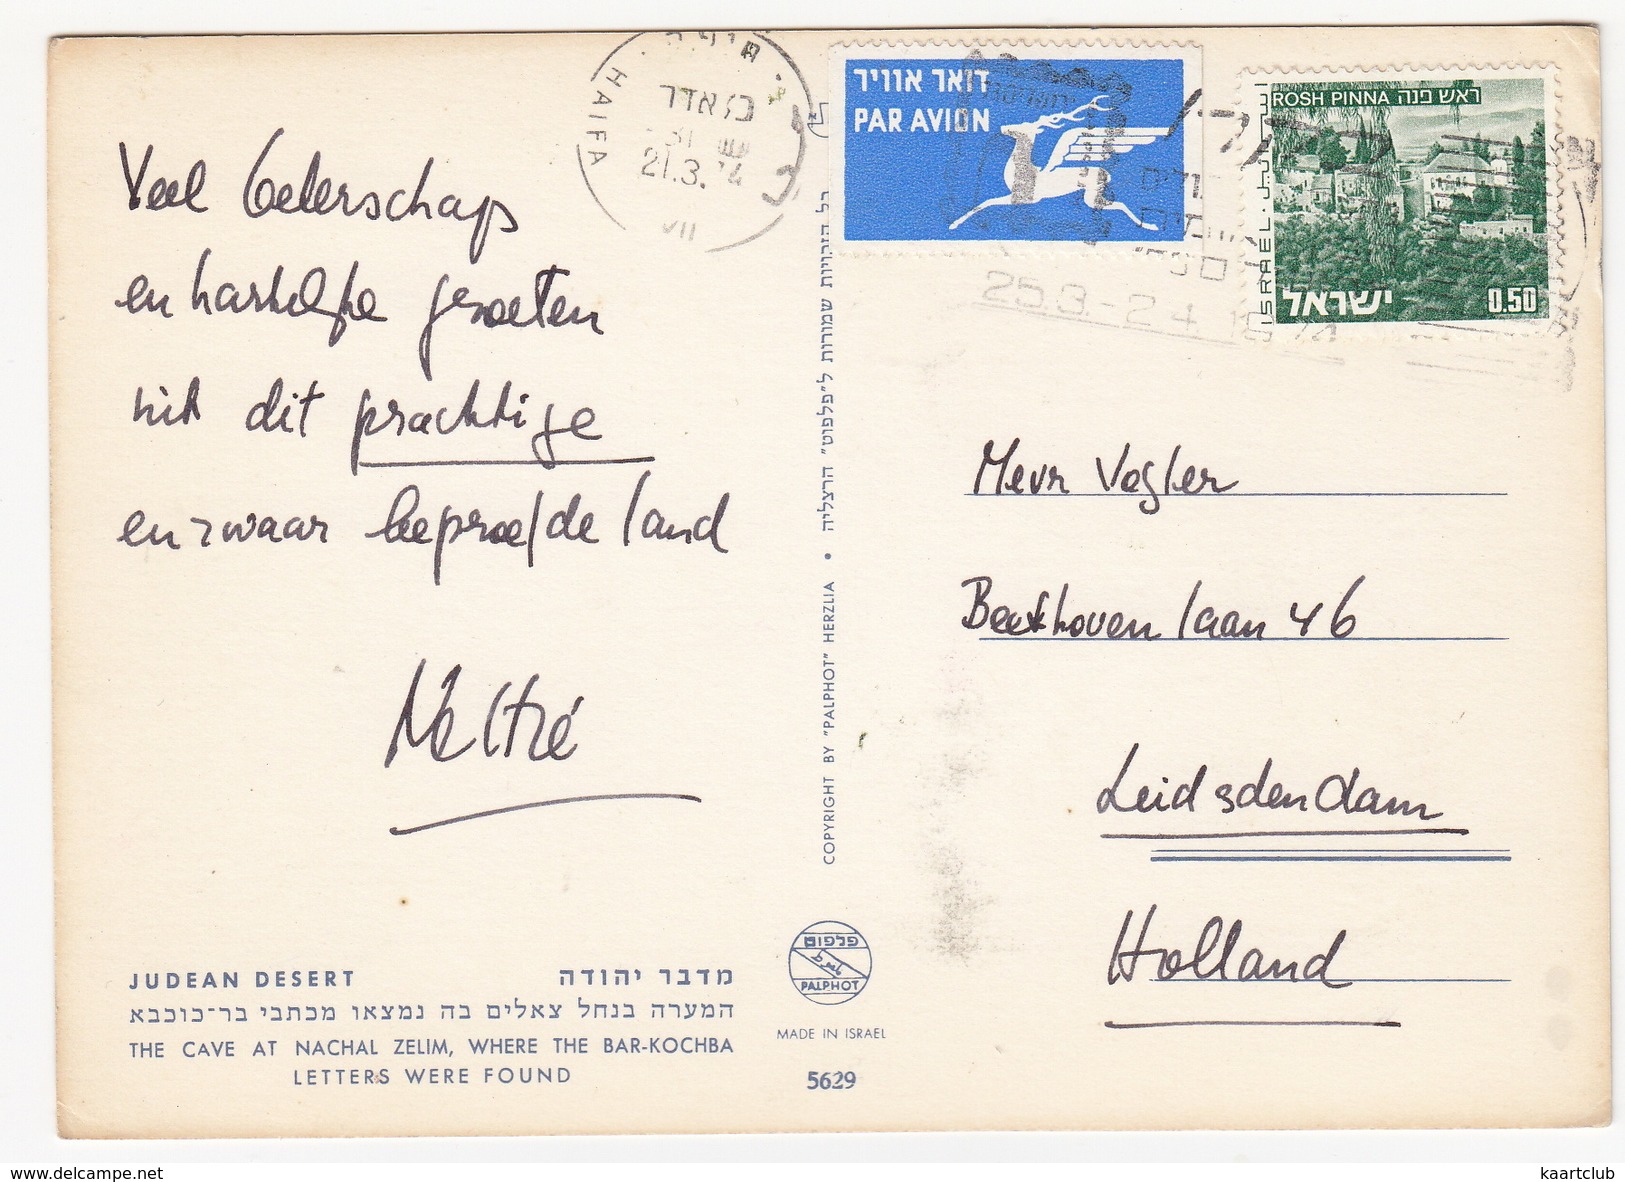 Veel beterschap
en hartelijke groeten
uit dit prachtige
en zwaar beproefde land
HAIFA
21.3.74
VII
דואר אוויר
PAR AVION
25.3.-2.4
ROSH PINNA ראש פנה
ISRAEL
ישראל
0.50
Mevr Vogler
Beethovenlaan 46
Leidschendam
Holland
כל הזכויות שמורות ל"פלפוט" הרצליה
COPYRIGHT BY "PALPHOT" HERZLIA
JUDEAN DESERT מדבר יהודה
המערה בנחל צאלים בה נמצאו מכתבי בר־כוכבא
THE CAVE AT NACHAL ZELIM, WHERE THE BAR-KOCHBA
LETTERS WERE FOUND
פלפוט
PALPHOT
MADE IN ISRAEL
5629
kaartclub
www.delcampe.net